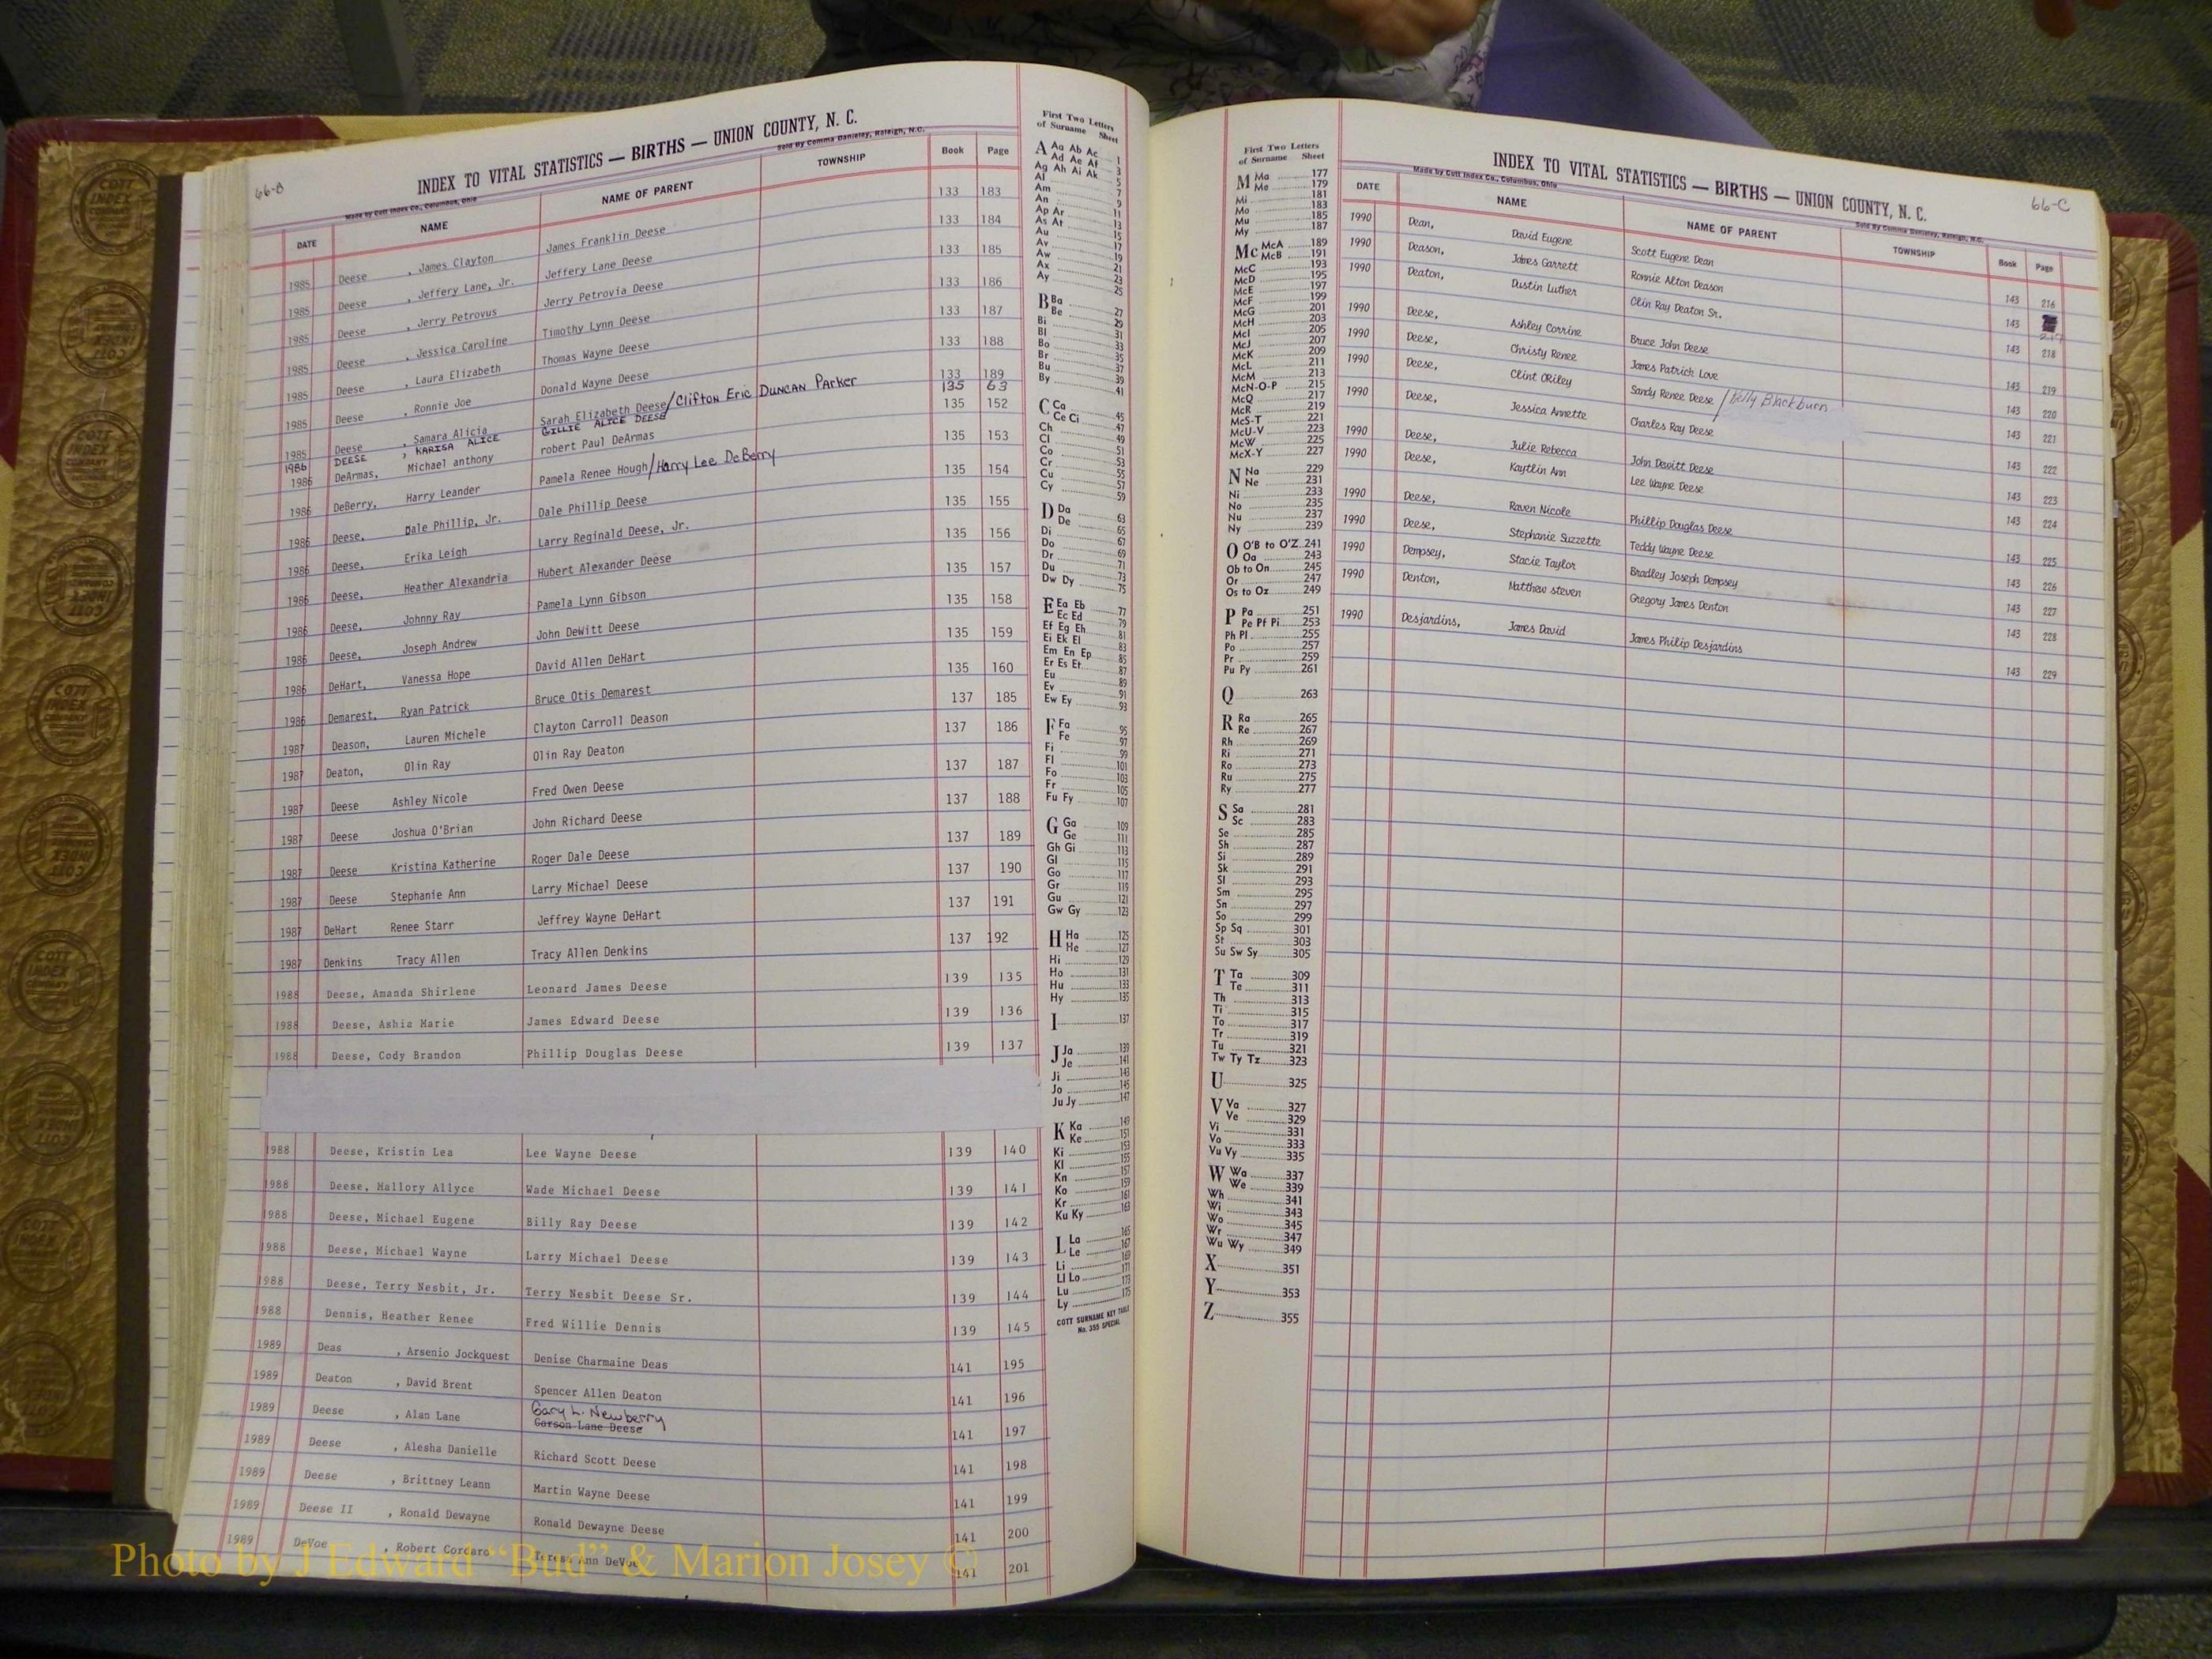 66-B
INDEX TO VITAL STATISTICS — BIRTHS — UNION COUNTY, N. C.
Made by Cott Index Co., Columbus, Ohio Sold By Comma Danieley, Raleigh, N.C.
DATE NAME NAME OF PARENT TOWNSHIP Book Page
1985 Deese , James Clayton James Franklin Deese 133 183
1985 Deese , Jeffery Lane, Jr. Jeffery Lane Deese 133 184
1985 Deese , Jerry Petrovus Jerry Petrovia Deese 133 185
1985 Deese , Jessica Caroline Timothy Lynn Deese 133 186
1985 Deese , Laura Elizabeth Thomas Wayne Deese 133 187
1985 Deese , Ronnie Joe Donald Wayne Deese 133 188
1985 Deese , Samara Alicia Sarah Elizabeth Deese/Clifton Eric Duncan Parker 133 189
1986 DEESE , KARISA ALICE GILLIE ALICE DEESE 135 63
1986 DeArmas, Michael anthony robert Paul DeArmas 135 152
1986 DeBerry, Harry Leander Pamela Renee Hough/Harry Lee DeBerry 135 153
1986 Deese, Dale Phillip, Jr. Dale Phillip Deese 135 154
1986 Deese, Erika Leigh Larry Reginald Deese, Jr. 135 155
1986 Deese, Heather Alexandria Hubert Alexander Deese 135 156
1986 Deese, Johnny Ray Pamela Lynn Gibson 135 157
1986 Deese, Joseph Andrew John DeWitt Deese 135 158
1986 DeHart, Vanessa Hope David Allen DeHart 135 159
1986 Demarest, Ryan Patrick Bruce Otis Demarest 135 160
1987 Deason, Lauren Michele Clayton Carroll Deason 137 185
1987 Deaton, Olin Ray Olin Ray Deaton 137 186
1987 Deese Ashley Nicole Fred Owen Deese 137 187
1987 Deese Joshua O'Brian John Richard Deese 137 188
1987 Deese Kristina Katherine Roger Dale Deese 137 189
1987 Deese Stephanie Ann Larry Michael Deese 137 190
1987 DeHart Renee Starr Jeffrey Wayne DeHart 137 191
1987 Denkins Tracy Allen Tracy Allen Denkins 137 192
1988 Deese, Amanda Shirlene Leonard James Deese 139 135
1988 Deese, Ashia Marie James Edward Deese 139 136
1988 Deese, Cody Brandon Phillip Douglas Deese 139 137
1988 Deese, Kristin Lea Lee Wayne Deese 139 140
1988 Deese, Mallory Allyce Wade Michael Deese 139 141
1988 Deese, Michael Eugene Billy Ray Deese 139 142
1988 Deese, Michael Wayne Larry Michael Deese 139 143
1988 Deese, Terry Nesbit, Jr. Terry Nesbit Deese Sr. 139 144
1988 Dennis, Heather Renee Fred Willie Dennis 139 145
1989 Deas , Arsenio Jockquest Denise Charmaine Deas 141 195
1989 Deaton , David Brent Spencer Allen Deaton 141 196
Gary L. Newberry
1989 Deese , Alan Lane Carson Lane Deese 141 197
1989 Deese , Alesha Danielle Richard Scott Deese 141 198
1989 Deese , Brittney Leann Martin Wayne Deese 141 199
1989 Deese II , Ronald Dewayne Ronald Dewayne Deese 141 200
1989 DeVoe , Robert Cordaro Teresa Ann DeVoe 141 201
First Two Letters
of Surname Sheet
A Aa Ab Ac 1
Ad Ae Af 3
Ag Ah Ai Ak 5
Al 7
Am 9
An 11
Ap Ar 13
As At 15
Au 17
Av 19
Aw 21
Ax 23
Ay 25
B Ba 27
Be 29
Bi 31
Bl 33
Bo 35
Br 37
Bu 39
By 41
C Ca 45
Ce Ci 47
Ch 49
Cl 51
Co 53
Cr 55
Cu 57
Cy 59
D Da 63
De 65
Di 67
Do 69
Dr 71
Du 73
Dw Dy 75
E Ea Eb 77
Ec Ed 79
Ef Eg Eh 81
Ei Ek El 83
Em En Ep 85
Er Es Et 87
Eu 89
Ev 91
Ew Ey 93
F Fa 95
Fe 97
Fi 99
Fl 101
Fo 103
Fr 105
Fu Fy 107
G Ga 109
Ge 111
Gh Gi 113
Gl 115
Go 117
Gr 119
Gu 121
Gw Gy 123
H Ha 125
He 127
Hi 129
Ho 131
Hu 133
Hy 135
I 137
J Ja 139
Je 141
Ji 143
Jo 145
Ju Jy 147
K Ka 149
Ke 151
Ki 153
Kl 155
Kn 157
Ko 159
Kr 161
Ku Ky 163
L La 165
Le 167
Li 169
Ll Lo 171
Lu 173
Ly 175
COTT SURNAME KEY TABLE
No. 355 SPECIAL
First Two Letters
of Surname Sheet
M Ma 177
Me 179
Mi 181
Mo 183
Mu 185
My 187
Mc McA 189
McB 191
McC 193
McD 195
McE 197
McF 199
McG 201
McH 203
McI 205
McJ 207
McK 209
McL 211
McM 213
McN-O-P 215
McQ 217
McR 219
McS-T 221
McU-V 223
McW 225
McX-Y 227
N Na 229
Ne 231
Ni 233
No 235
Nu 237
Ny 239
O O'B to O'Z 241
Oa 243
Ob to On 245
Or 247
Os to Oz 249
P Pa 251
Pe Pf Pi 253
Ph Pl 255
Po 257
Pr 259
Pu Py 261
Q 263
R Ra 265
Re 267
Rh 269
Ri 271
Ro 273
Ru 275
Ry 277
S Sa 281
Sc 283
Se 285
Sh 287
Si 289
Sk 291
Sl 293
Sm 295
Sn 297
So 299
Sp Sq 301
St 303
Su Sw Sy 305
T Ta 309
Te 311
Th 313
Ti 315
To 317
Tr 319
Tu 321
Tw Ty Tz 323
U 325
V Va 327
Ve 329
Vi 331
Vo 333
Vu Vy 335
W Wa 337
We 339
Wh 341
Wi 343
Wo 345
Wr 347
Wu Wy 349
X 351
Y 353
Z 355
66-C
INDEX TO VITAL STATISTICS — BIRTHS — UNION COUNTY, N. C.
Made by Cott Index Co., Columbus, Ohio Sold By Comma Danieley, Raleigh, N.C.
DATE NAME NAME OF PARENT TOWNSHIP Book Page
1990 Dean, David Eugene Scott Eugene Dean 143 216
1990 Deason, James Garrett Ronnie Alton Deason 143 217
1990 Deaton, Dustin Luther Olin Ray Deaton Sr. 143 218
1990 Deese, Ashley Corrine Bruce John Deese 143 219
1990 Deese, Christy Renee James Patrick Love 143 220
1990 Deese, Clint ORiley Sandy Renee Deese / Billy Blackburn 143 221
1990 Deese, Jessica Annette Charles Ray Deese 143 222
1990 Deese, Julie Rebecca John Dewitt Deese 143 223
1990 Deese, Kaytlin Ann Lee Wayne Deese 143 224
1990 Deese, Raven Nicole Phillip Douglas Deese 143 225
1990 Deese, Stephanie Suzzette Teddy Wayne Deese 143 226
1990 Dempsey, Stacie Taylor Bradley Joseph Dempsey 143 227
1990 Denton, Matthew steven Gregory James Denton 143 228
1990 Desjardins, James David James Philip Desjardins 143 229
Photo by J Edward “Bud” & Marion Josey ©